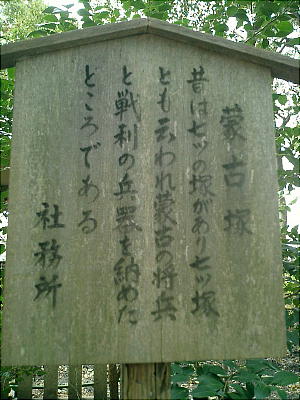 蒙古塚
昔は七ツの塚があり七ツ塚
とも云われ蒙古の将兵
と戦利の兵器を納めた
ところである
社務所